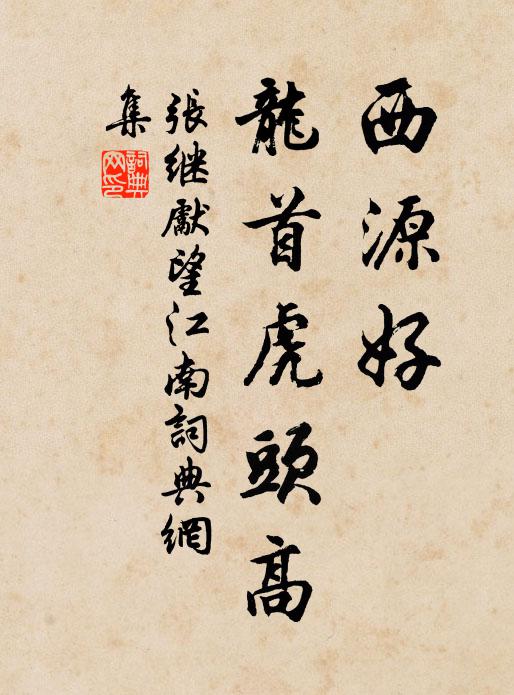 西源好
龍首虎頭高
張继獻望江南詞典網
集
詞典網印